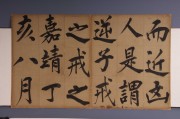 而近凶
人是謂
逆子戒
之戒之
嘉靖丁
亥八月